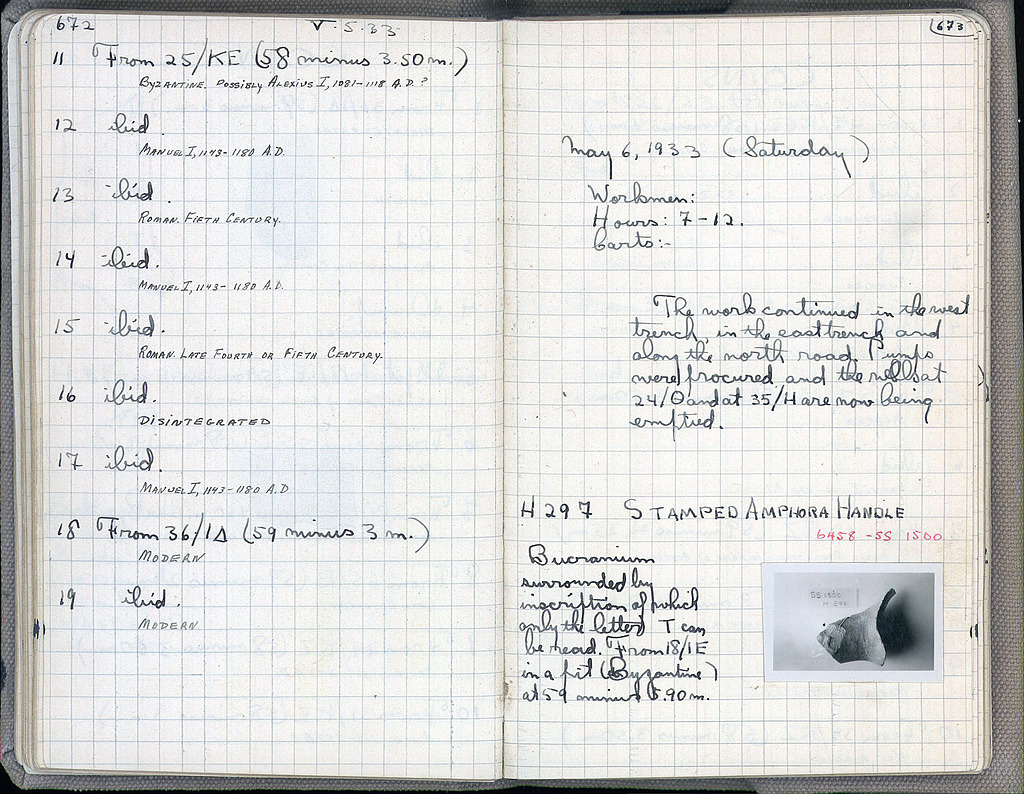 672
V. 5.33
11 From 25/KE (58 minus 3.50 m.)
BYZANTINE. POSSIBLY ALEXIUS I, 1081-1118 A.D.?
12 ibid.
MANUEL I, 1143-1180 A.D.
13 ibid.
ROMAN. FIFTH CENTURY.
14 ibid.
MANUEL I, 1143-1180 A.D.
15 ibid.
ROMAN. LATE FOURTH OR FIFTH CENTURY.
16 ibid.
DISINTEGRATED
17 ibid.
MANUEL I, 1143-1180 A.D
18 From 36/ΙΔ (59 minus 3 m.)
MODERN
19 ibid.
MODERN
673
May 6, 1933 (Saturday)
Workmen:
Hours: 7-12.
Carts:-
The work continued in the west
trench, in the east trench and
along the north road. Pumps
were procured and the wells at
24/Θ and at 35/H are now being
emptied.
H 297 STAMPED AMPHORA HANDLE
6458 - SS 1500
Bucranium
surrounded by
inscription of which
only the letter T can
be read. From 18/ΙΕ
in a pit (Byzantine)
at 59 minus 5.90 m.
SS 1500
H 297